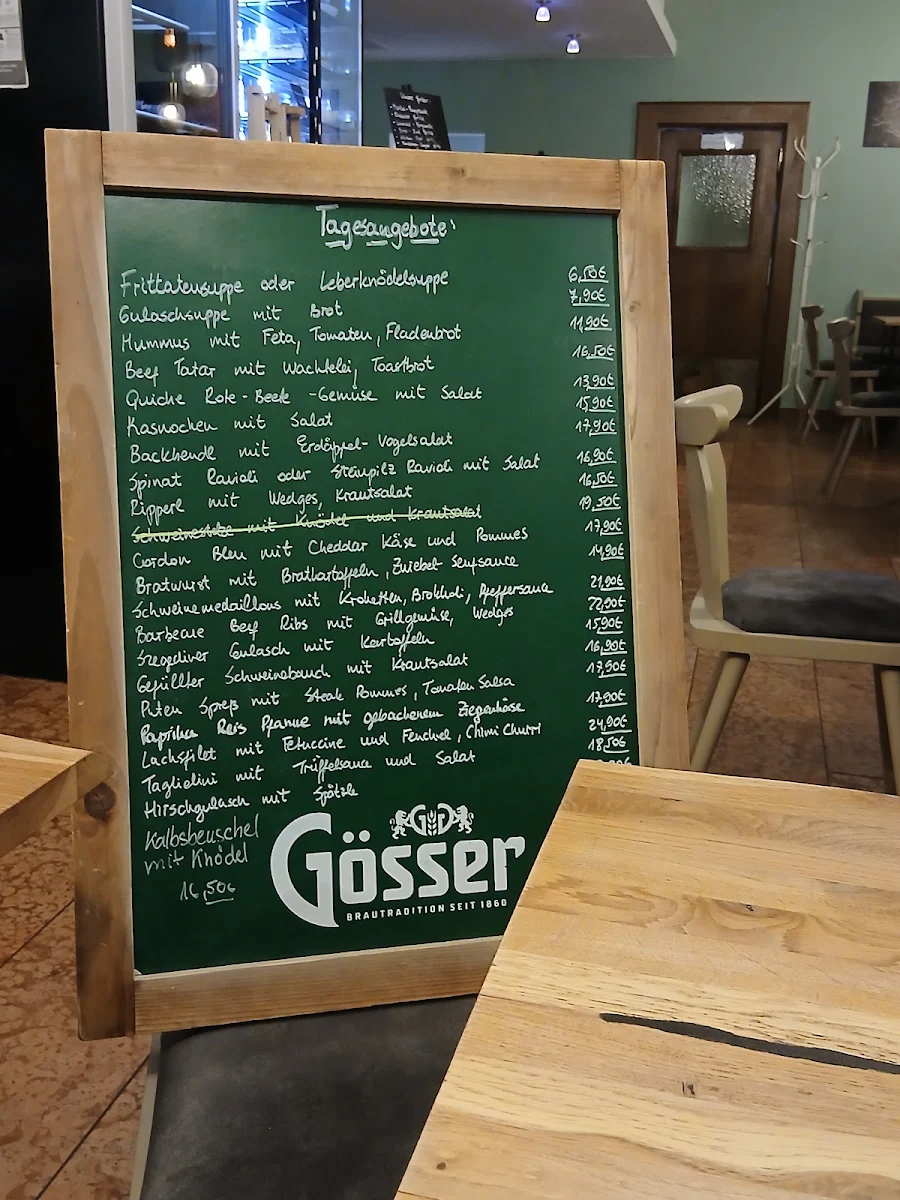 Tagesangebote:
Frittatensuppe oder Leberknödelsuppe 6,50€
Gulaschsuppe mit Brot 7,90€
Hummus mit Feta, Tomaten, Fladenbrot 11,90€
Beef Tatar mit Wachtelei, Toastbrot 16,50€
Quiche Rote-Beete-Gemüse mit Salat 13,90€
Kasnocken mit Salat 15,90€
Backhendl mit Erdäpfel-Vogelsalat 17,90€
Spinat Ravioli oder Steinpilz Ravioli mit Salat 16,90€
Ripperl mit Wedges, Krautsalat 16,50€
Schweinestelze mit Knödel und Krautsalat 19,50€
Cordon Bleu mit Cheddar Käse und Pommes 17,90€
Bratwurst mit Bratkartoffeln, Zwiebel Senfsauce 14,90€
Schweinemedaillons mit Kroketten, Brokkoli, Pfeffersauce 21,90€
Barbecue Beef Ribs mit Grillgemüse, Wedges 22,90€
Szegediner Gulasch mit Kartoffeln 15,90€
Gefüllter Schweinebauch mit Krautsalat 16,90€
Puten Spieß mit Steak Pommes, Tomaten Salsa 17,90€
Paprika Reis Pfanne mit gebackenem Ziegenkäse 17,90€
Lachsfilet mit Fetuccine und Fenchel, Chimi Churri 24,90€
Tagliolini mit Trüffelsauce und Salat 18,50€
Hirschgulasch mit Spätzle
Kalbsbeuschel
mit Knödel
16,50€
GG
Gösser
BRAUTRADITION SEIT 1860